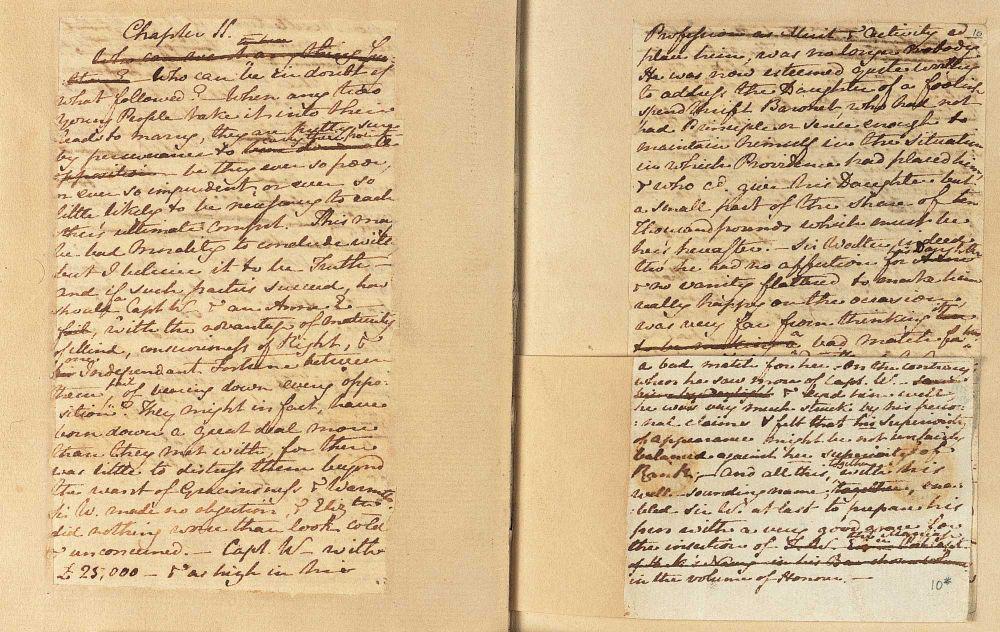 Chapter 11.
Who can be in doubt of
what followed? — When any two
Young People take it into their
heads to marry, they are pretty sure
by perseverance to carry their point —
be they ever so poor,
or ever so imprudent, or ever so
little likely to be necessary to each
other's ultimate comfort. This may
be bad Morality to conclude with,
but I believe it to be Truth —
and if such parties succeed, how
should a Capt W— & an Anne E—
with the advantage of maturity
of Mind, consciousness of Right, &
one Independant Fortune between
them of bearing down every oppo:
:sition? They might in fact, have
born down a great deal more
than they met with, for there
was little to distress them beyond
the want of Graciousness & Warmth.
Sir W. made no objection, & Elizth
did nothing worse than look cold
& unconcerned. — Capt W— with
£25,000 — & as high in his
Profession as Merit & Activity cd
place him, was no longer nobody. 10
He was now esteemed quite worthy
to address the Daughter of a foolish
spendthrift Baronet, who had not
had Principle or sense enough to
maintain himself in the Situation
in which Providence had placed him,
& who cd. give his Daughter but
a small part of the share of ten
Thousand pounds which must be
hers hereafter. — Sir Walter indeed
tho' he had no affection for his Daughter
& no vanity flattered to make him
really happy on the occasion,
was very far from thinking
it a bad match for
a bad match for her. On the contrary
when he saw more of Capt. W—
& eyed him well,
he was very much struck by his perso:
:nal claims & felt that his superiority
of appearance might be not unfairly
balanced against her superiority of
Rank; — and all this, together with his
well-sounding name, ena:
:bled Sir W. at last to prepare his
pen with a very good grace for
the insertion of the Marriage
in the volume of Honour. —
10*